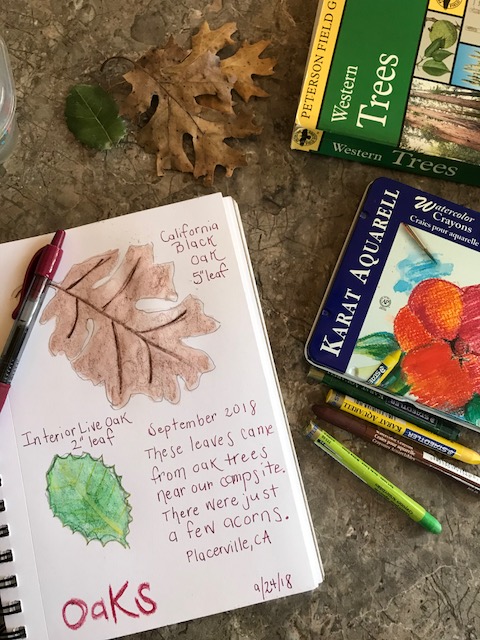 PETERSON FIELD G
Western
Trees
Western Trees
Watercolor
Crayons
Craies pour aquarelle
KARAT AQUARELL
California
Black
Oak
5" leaf
Interior Live Oak
2" leaf
September 2018
These leaves came
from oak trees
near our campsite.
There were just
a few acorns.
Placerville, CA
9/24/18
Oaks
STAEDTLER
KARAT AQUARELL
STAEDTLER